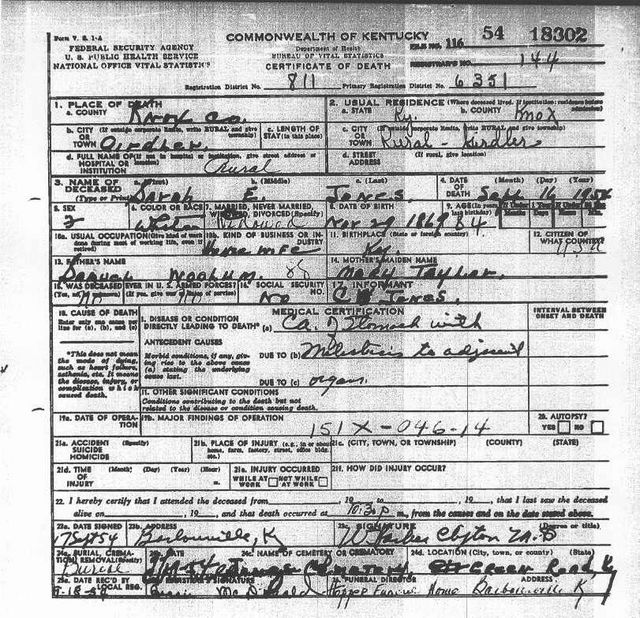 Form V. S. 1-A
FEDERAL SECURITY AGENCY
U. S. PUBLIC HEALTH SERVICE
NATIONAL OFFICE VITAL STATISTICS
COMMONWEALTH OF KENTUCKY
Department of Health
BUREAU OF VITAL STATISTICS
CERTIFICATE OF DEATH
FILE NO. 116 54 18302
REGISTRAR'S NO. 144
Registration District No. 811 Primary Registration District No. 6351
1. PLACE OF DEATH
a. COUNTY Knox Co.
2. USUAL RESIDENCE (Where deceased lived. If institution: residence before admission)
a. STATE Ky. b. COUNTY Knox
b. CITY (If outside corporate limits, write RURAL and give township) OR TOWN Girdler
c. LENGTH OF STAY (in this place)
c. CITY (If outside corporate limits, write RURAL and give township) OR TOWN Rural - Girdler
d. FULL NAME OF (If not in hospital or institution, give street address or location) HOSPITAL OR INSTITUTION Rural
d. STREET ADDRESS (If rural, give location)
3. NAME OF DECEASED (Type or Print) a. (First) Sarah b. (Middle) E. c. (Last) Jones
4. DATE OF DEATH (Month) (Day) (Year) Sept 16 1954
5. SEX F
6. COLOR OR RACE White
7. MARRIED, NEVER MARRIED, WIDOWED, DIVORCED (Specify) Widowed
8. DATE OF BIRTH Nov 27 1869
9. AGE (In years last birthday) 84
If Under 1 Year Months Days If Under 24 Hrs. Hours Min.
10a. USUAL OCCUPATION (Give kind of work done during most of working life, even if retired)
10b. KIND OF BUSINESS OR INDUSTRY House wife
11. BIRTHPLACE (State or foreign country) Ky.
12. CITIZEN OF WHAT COUNTRY? U.S.A
13. FATHER'S NAME Samuel Woolum
14. MOTHER'S MAIDEN NAME Mary Taylor
15. WAS DECEASED EVER IN U.S. ARMED FORCES? (Yes, no, or unknown) (If yes, give war or dates of service) No
16. SOCIAL SECURITY NO. No
17. INFORMANT Jones.
18. CAUSE OF DEATH
Enter only one cause per line for (a), (b), and (c)
MEDICAL CERTIFICATION
INTERVAL BETWEEN ONSET AND DEATH
I. DISEASE OR CONDITION DIRECTLY LEADING TO DEATH* (a) Ca. of Stomach with
*This does not mean the mode of dying, such as heart failure, asthenia, etc. It means the disease, injury, or complication which caused death.
ANTECEDENT CAUSES
Morbid conditions, if any, giving rise to the above cause (a) stating the underlying cause last.
DUE TO (b) Metastisis to adjacent
DUE TO (c) organs.
II. OTHER SIGNIFICANT CONDITIONS
Conditions contributing to the death but not related to the disease or condition causing death.
19a. DATE OF OPERATION
19b. MAJOR FINDINGS OF OPERATION
151X-046-14
20. AUTOPSY? YES NO
21a. ACCIDENT SUICIDE HOMICIDE (Specify)
21b. PLACE OF INJURY (e.g., in or about home, farm, factory, street, office bldg. etc.)
21c. (CITY, TOWN, OR TOWNSHIP) (COUNTY) (STATE)
21d. TIME OF INJURY (Month) (Day) (Year) (Hour) m.
21e. INJURY OCCURRED WHILE AT WORK NOT WHILE AT WORK
21f. HOW DID INJURY OCCUR?
22. I hereby certify that I attended the deceased from , 19 , to , 19 , that I last saw the deceased
alive on , 19 , and that death occurred at 10:30 p m., from the causes and on the date stated above.
23a. DATE SIGNED 17 Sept 54
23b. ADDRESS Barbourville, Ky
23c. SIGNATURE (Degree or title) W Parker Clifton M.D
24a. BURIAL, CREMATION, REMOVAL (Specify) Burial
24b. DATE
24c. NAME OF CEMETERY OR CREMATORY Cemetery
24d. LOCATION (City, town, or county) (State) Green Road, Ky
25a. DATE REC'D BY LOCAL REG. 9-18-54
REGISTRAR'S SIGNATURE McDonald
FUNERAL DIRECTOR ADDRESS Hopper Funeral Home Barbourville Ky